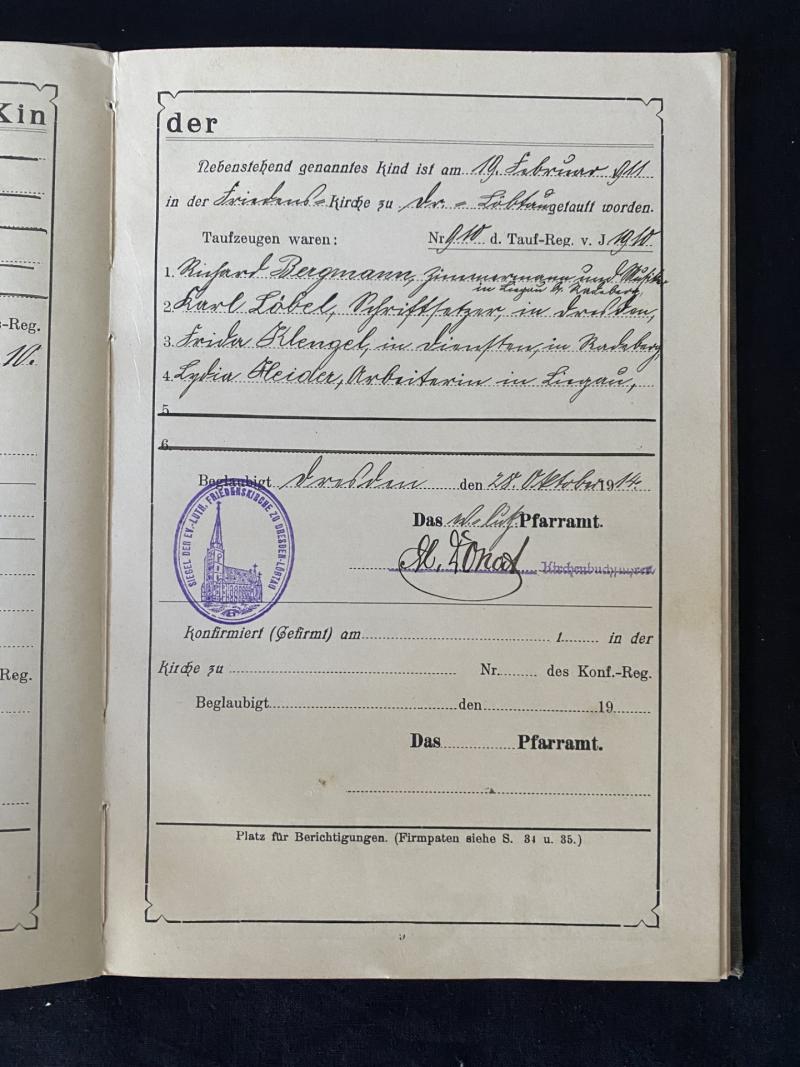 Kin
der
Nebenstehend genanntes Kind ist am 19. Februar 911
in der Friedens-Kirche zu Dr.-Löbtau getauft worden.
Taufzeugen waren: Nr. 910 d. Tauf-Reg. v. J 1910.
1. Richard Bergmann, Zimmermann und Musiker
in Liegau b. Radeberg
2. Karl Löbel, Schriftsetzer, in Dresden,
3. Frida Klengel, in Diensten, in Radeberg,
4. Lydia Heider, Arbeiterin in Liegau,
5
6.
s-Reg.
10.
Beglaubigt Dresden den 28. Oktober 1914.
Das ev-luth. Pfarramt.
SIEGEL DER EV.-LUTH. FRIEDENSKIRCHE ZU DRESDEN-LÖBTAU
Konfirmiert (Gefirmt) am 1 in der
Kirche zu Nr. des Konf.-Reg.
Reg.
Beglaubigt den 19
Das Pfarramt.
Platz für Berichtigungen. (Firmpaten siehe S. 34 u. 35.)